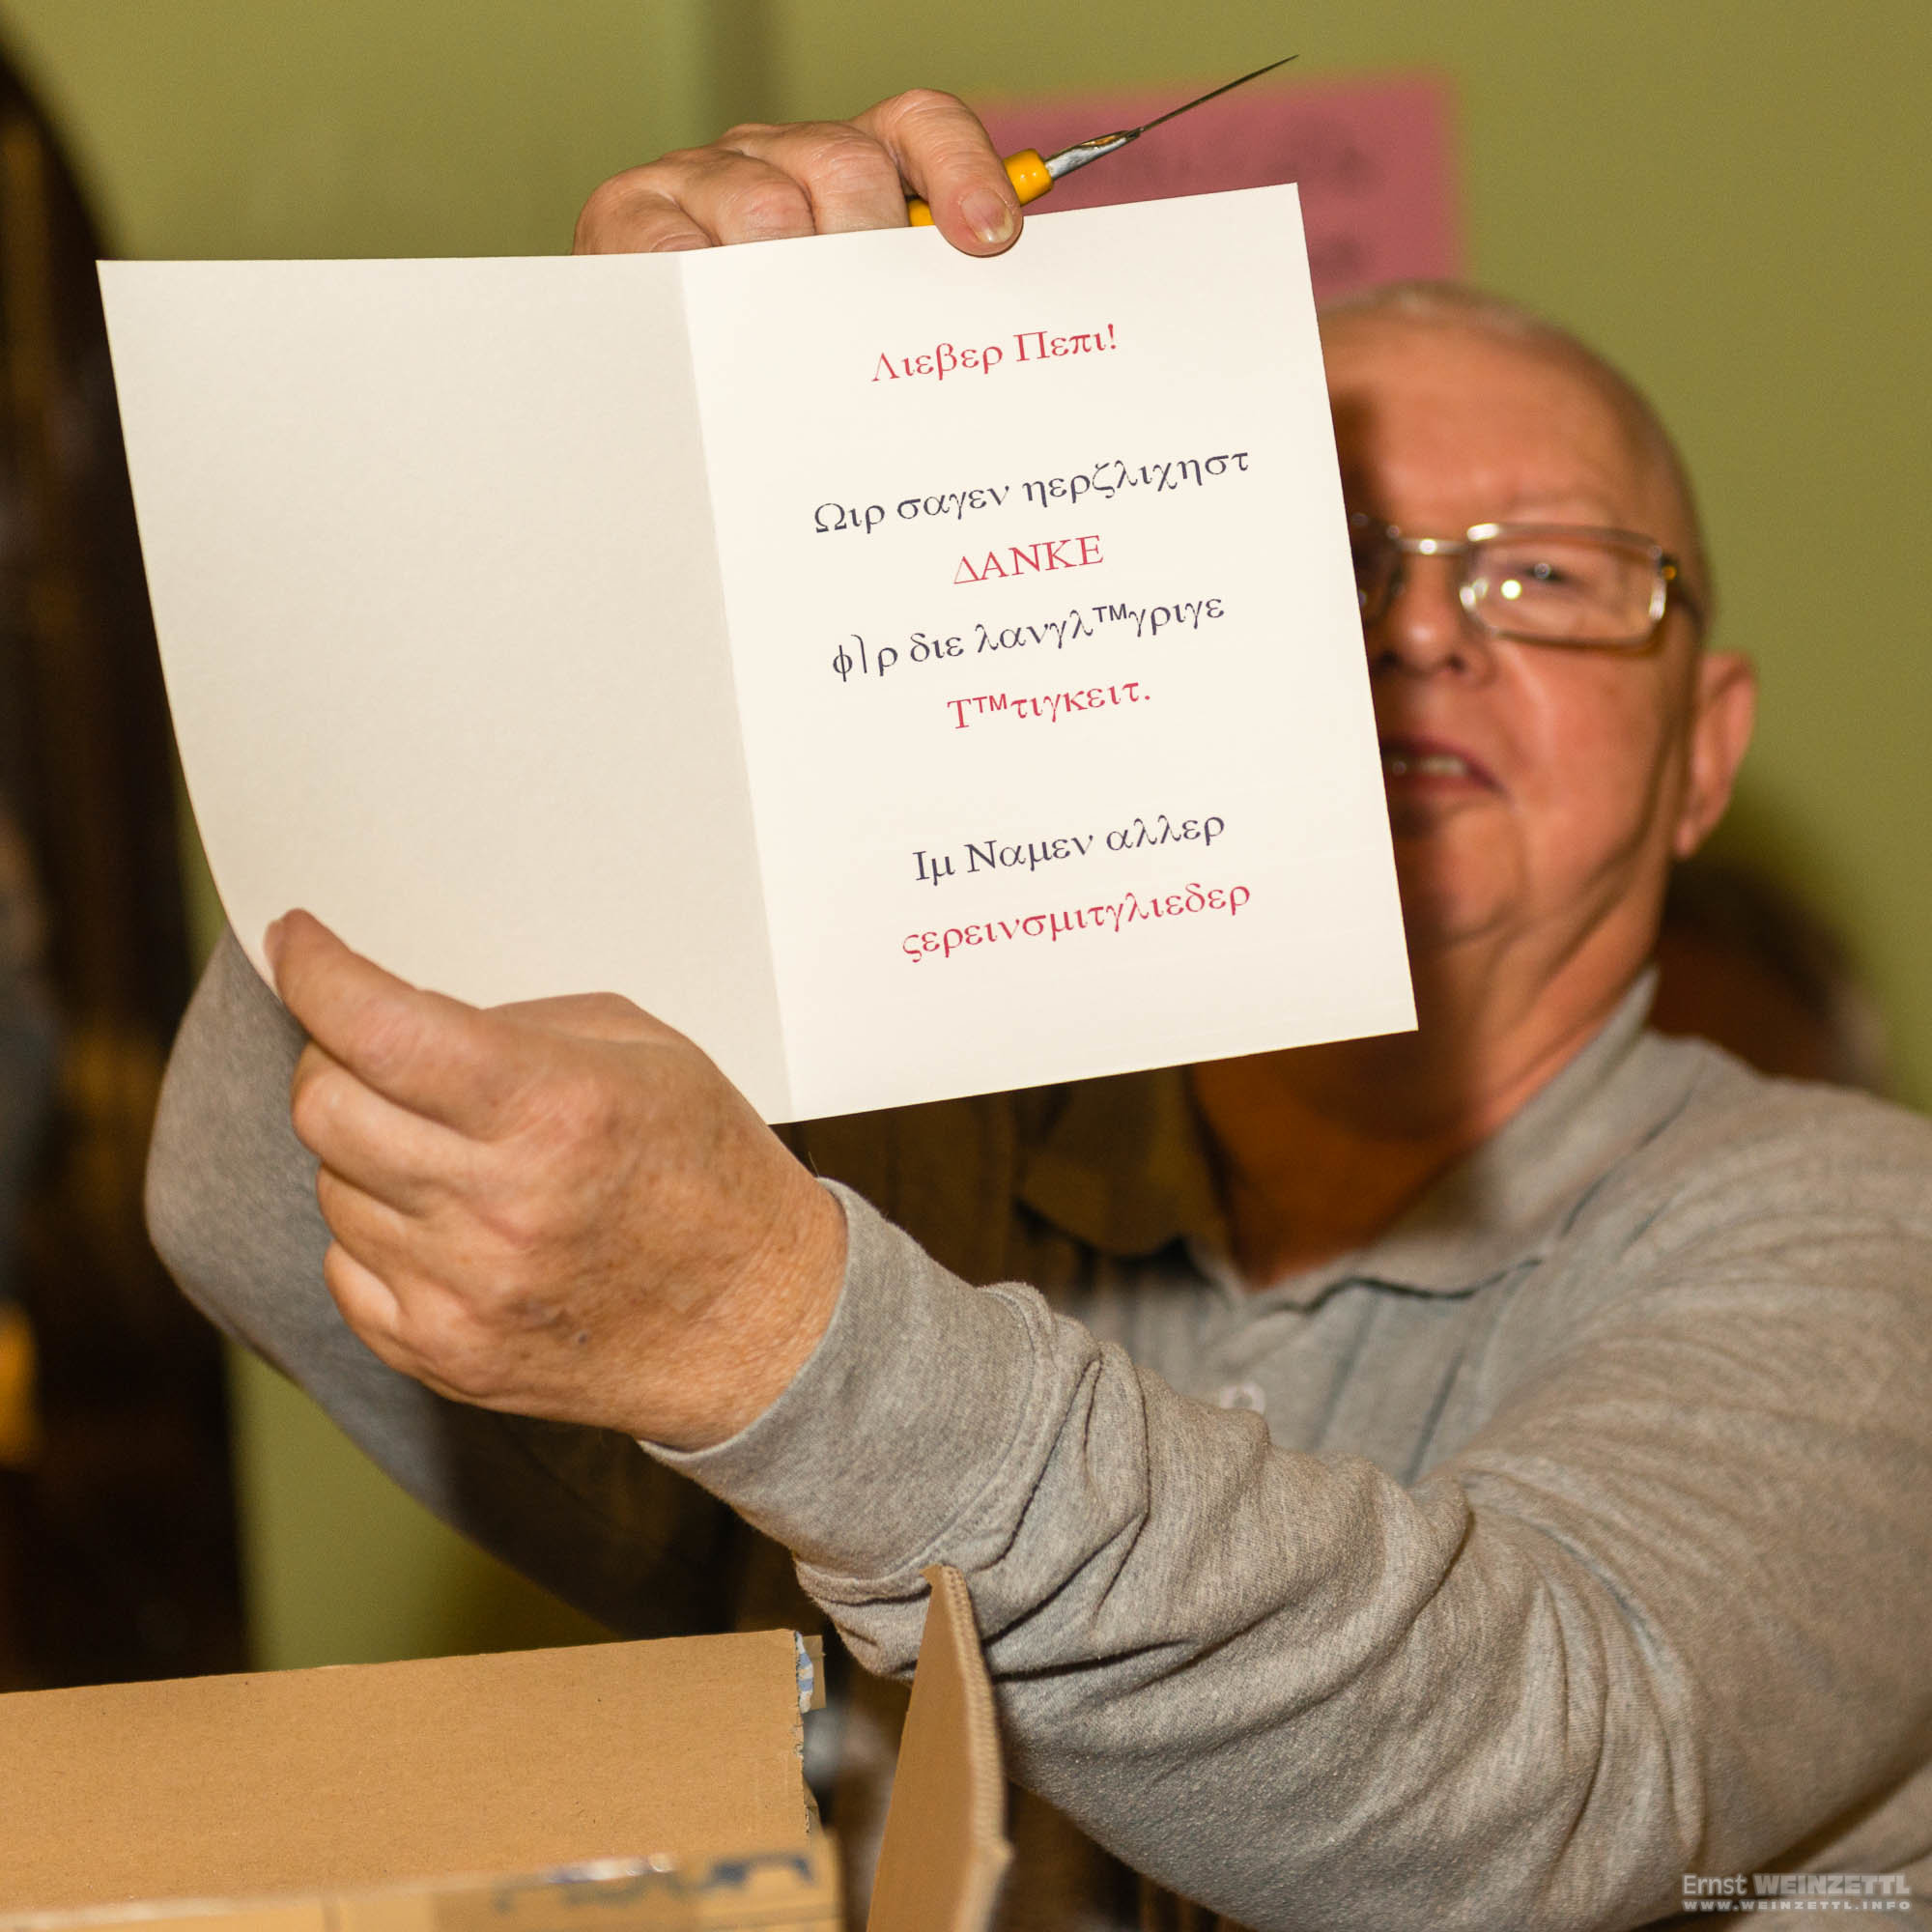 Λιεβερ Πεπι!
Ωιρ σαγεν ηερζλιχηστ
ΔΑΝΚΕ
φ⎫ρ διε λανγλ™γριγε
Τ™τιγκειτ.
Ιμ Ναμεν αλλερ
ςερεινσμιτγλιεδερ
Ernst WEINZETTL
WWW.WEINZETTL.INFO